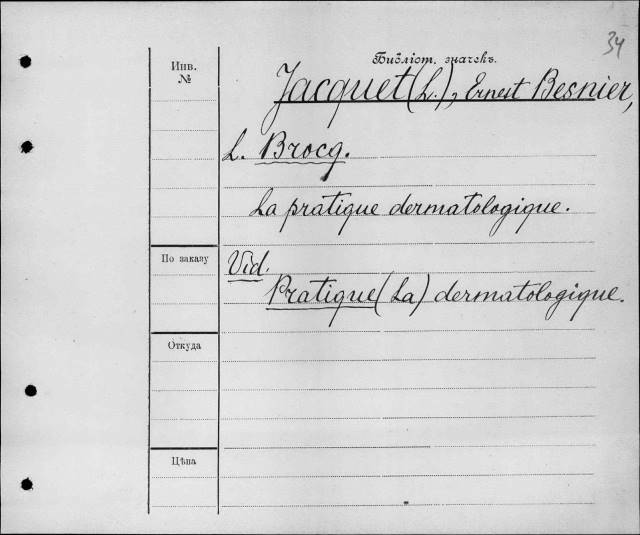 34
Библіот. значекъ.
Инв.
№
Jacquet (L.), Ernest Besnier,
L. Brocq.
La pratique dermatologique.
По заказу
Vid.
Pratique (La) dermatologique.
Откуда
Цѣна